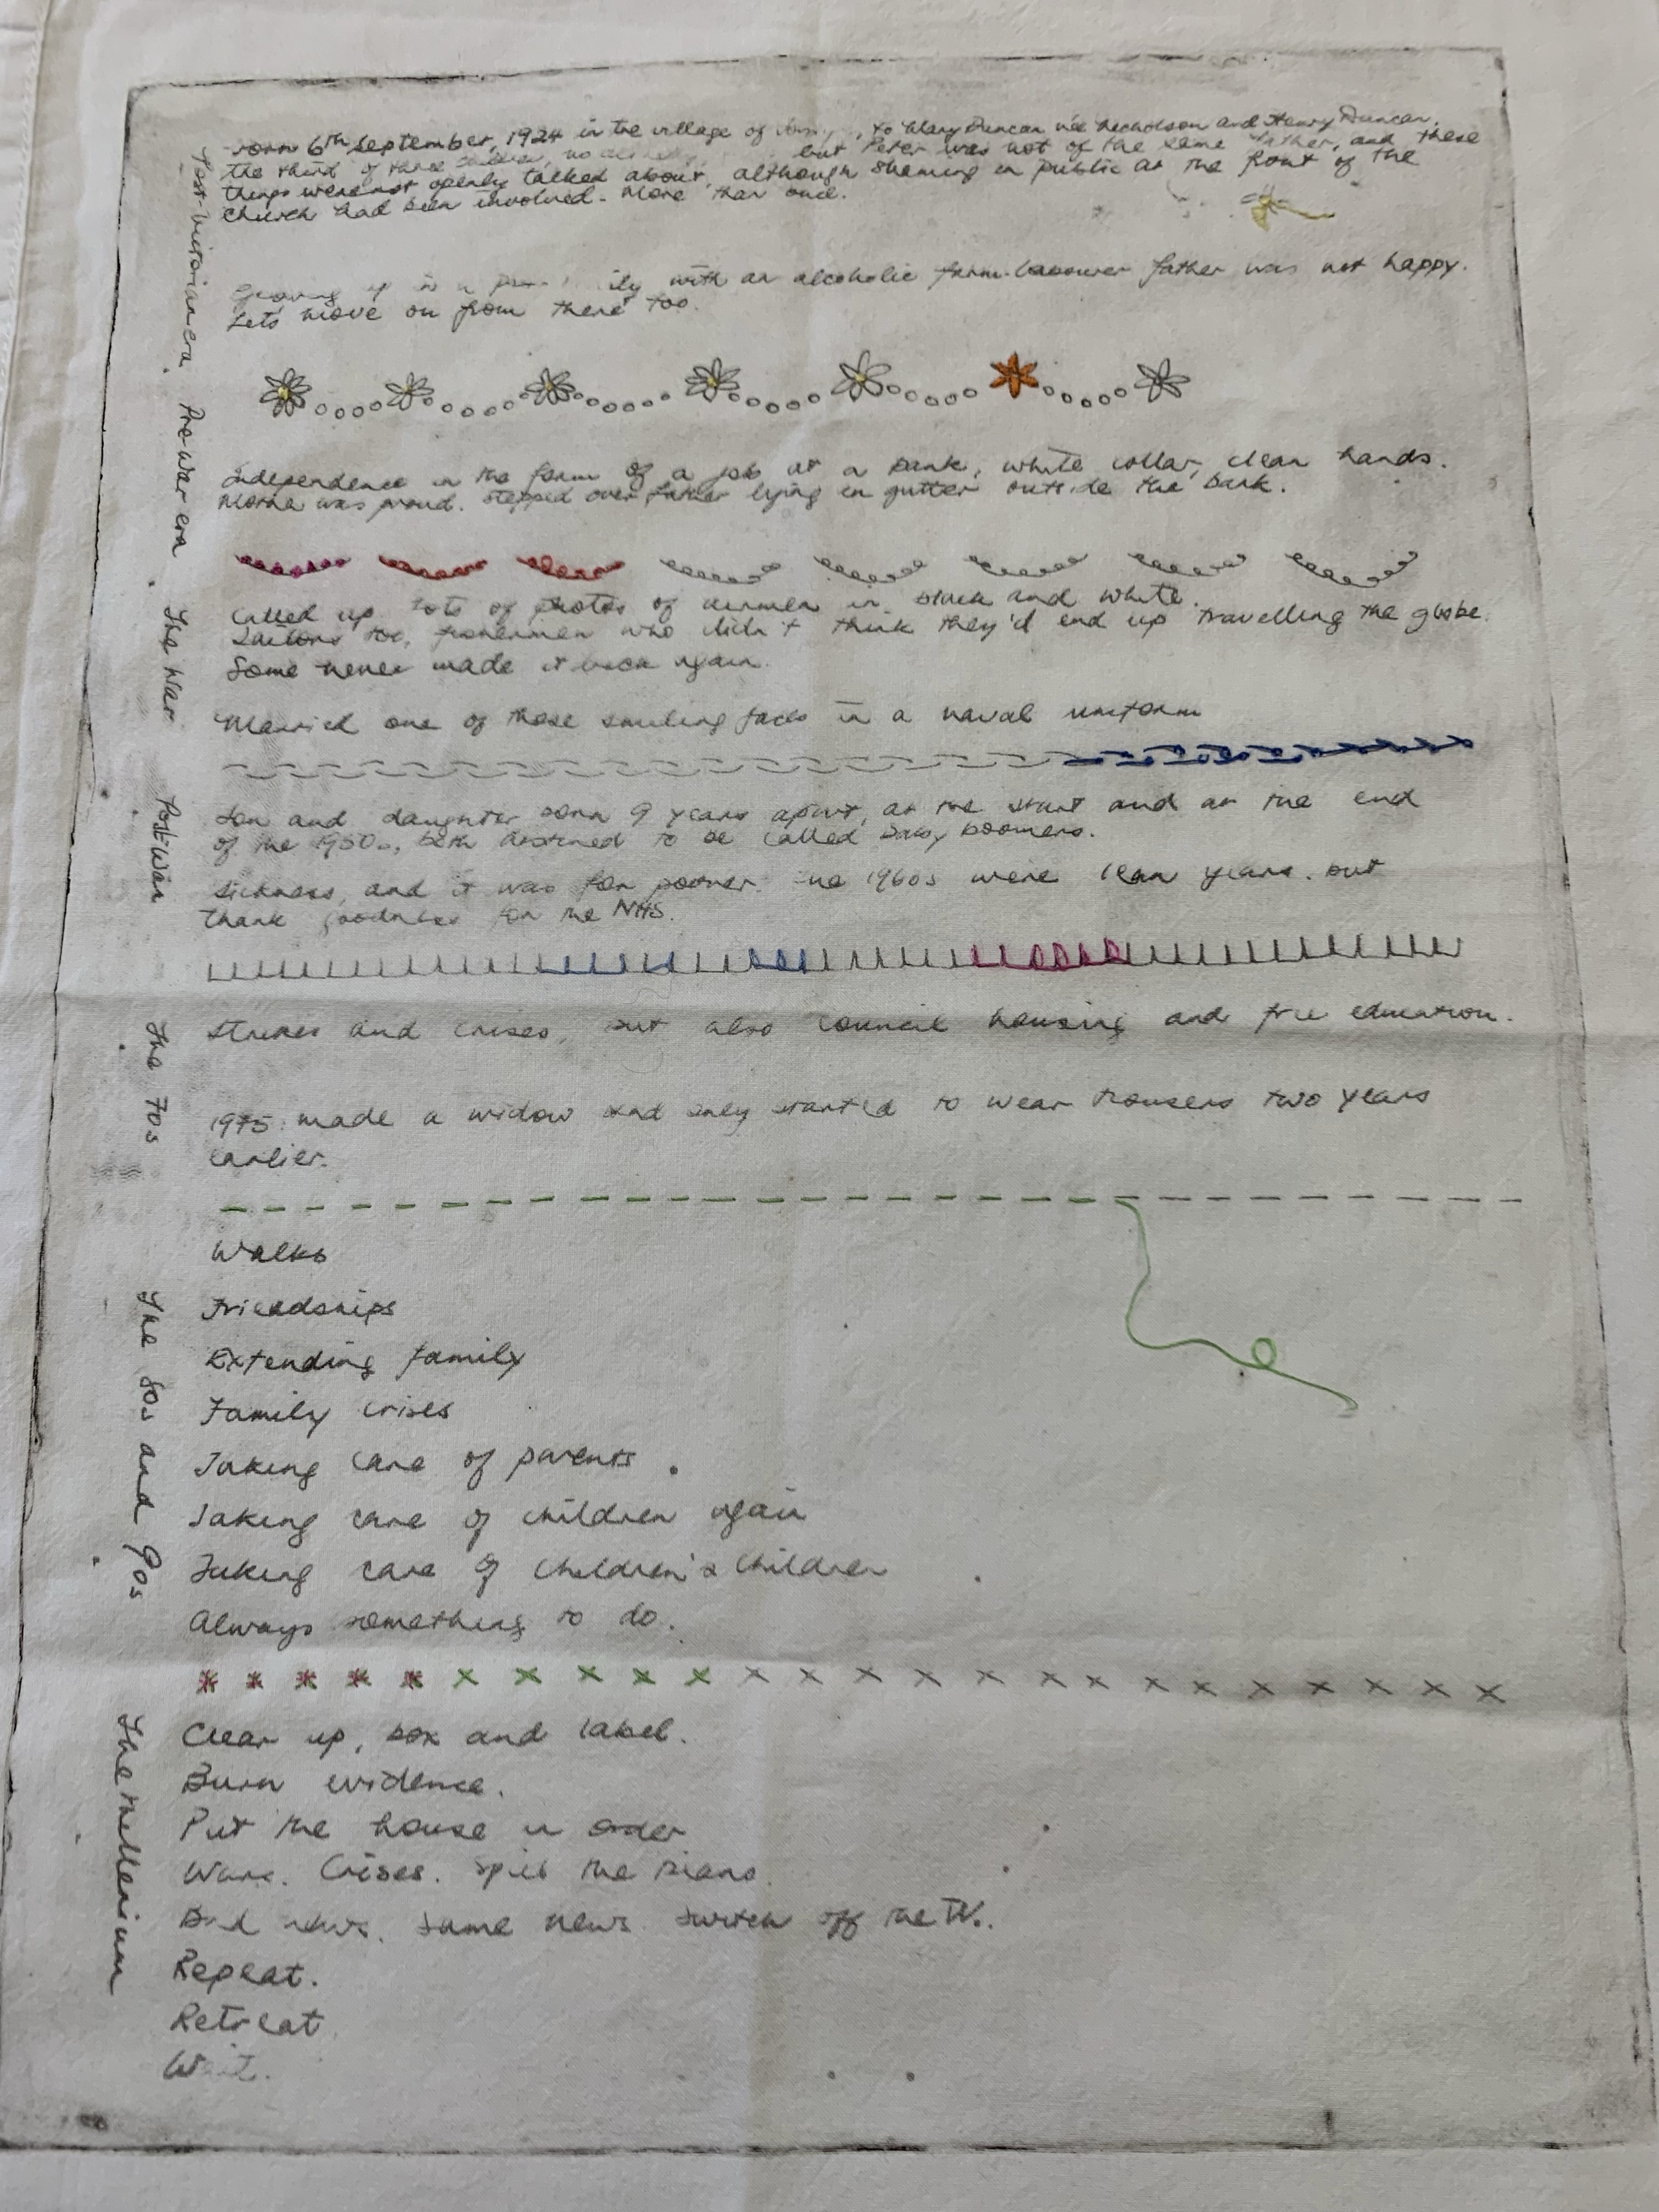 Post-Victorian era
Born 6th September, 1924 in the village of, to Mary Duncan née Nicholson and Henry Duncan.
the third of three children, but Peter was not of the same father, and these
things were not openly talked about, although shaming in public at the front of the
church had been involved. More than once.
Growing up in a with an alcoholic farm-labourer father was not happy.
Lets move on from there too.
Pre-war era
Independence in the form of a job at a bank, white collar, clean hands.
Mother was proud. Stepped over father lying in gutter outside the bank.
The War
Called up. Lots of photos of airmen in black and white.
Sailors too, fishermen who didn't think they'd end up travelling the globe.
Some never made it back again.
Married one of those smiling faces in a naval uniform
Post-War
Son and daughter born 9 years apart, at the start and at the end
of the 1950s, both destined to be called baby boomers.
Sickness, and it was for poorer. The 1960s were lean years. But
thank goodness for the NHS.
The 70s
Strikes and crises, but also council housing and free education.
1975: made a widow and only started to wear trousers two years
earlier.
The 80s and 90s
Walks
Friendships
Extending family
Family crises
Taking care of parents.
Taking care of children again
Taking care of children's children
Always something to do.
The Millennium
Clear up, box and label.
Burn evidence.
Put the house in order
Wars. Crises. the
Bad news. Same news. Switch off the TV.
Repeat.
Retreat
Wait.